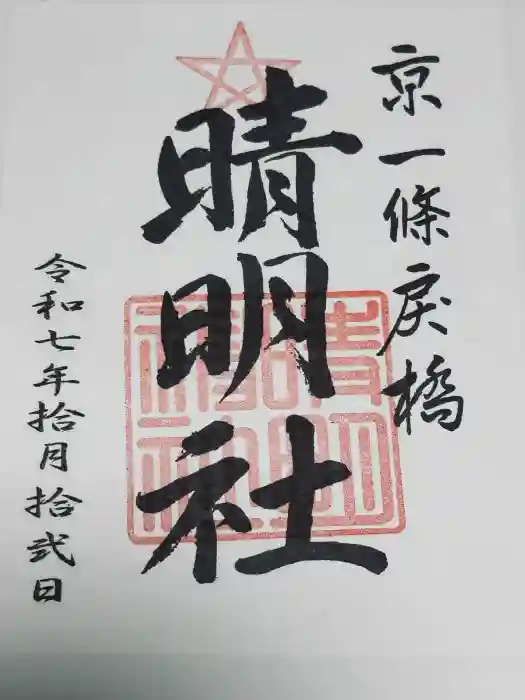 京一條戻橋
晴明社
令和七年拾月拾弐日